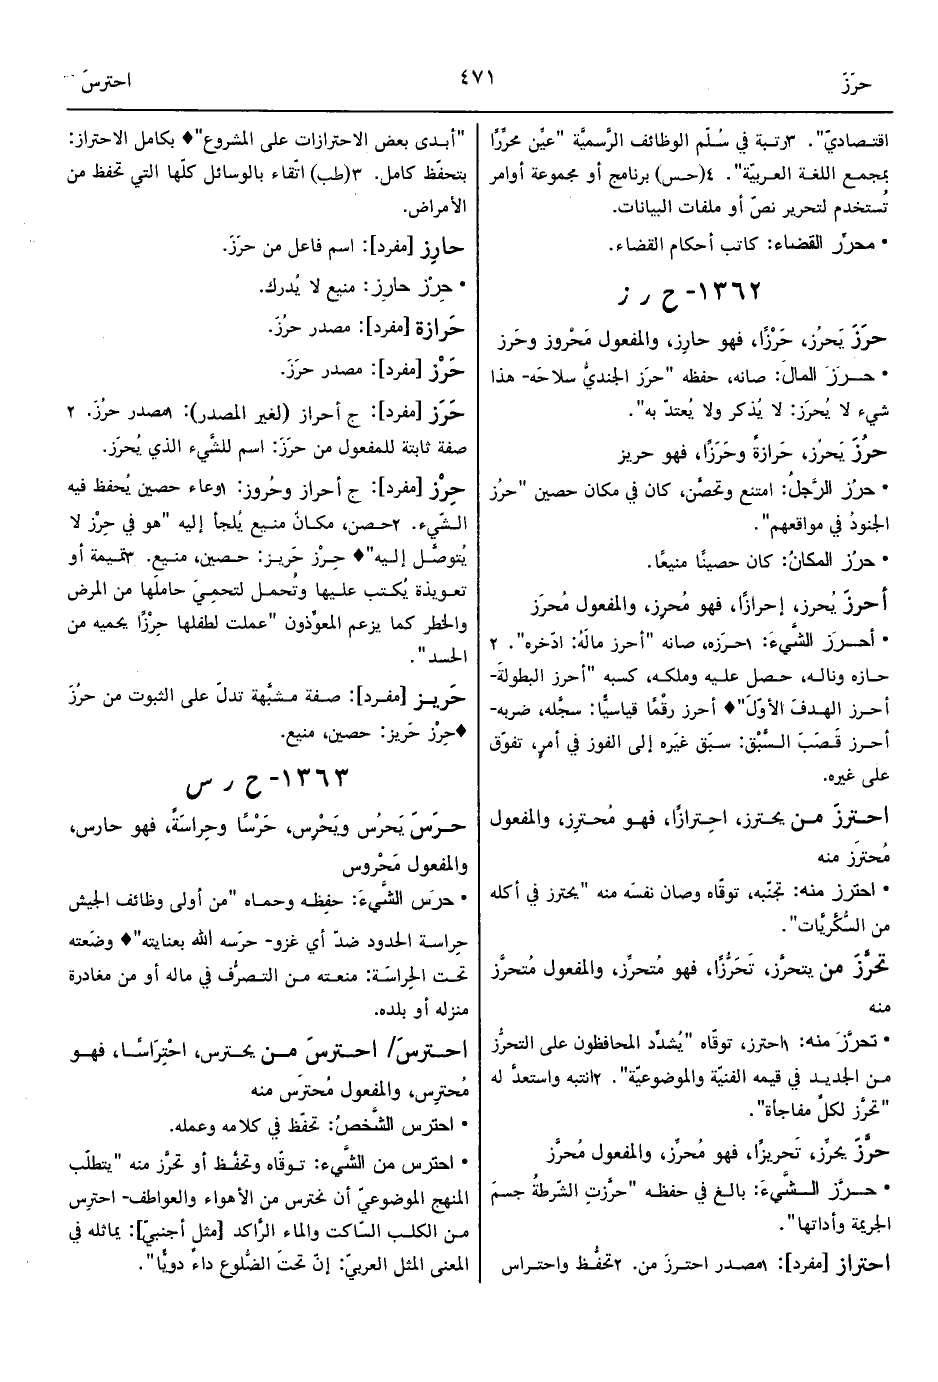 حرَزَ
٤٧١
احترسَ
اقتصاديّ". ٣رتبة في سُلّم الوظائف الرَّسميَّة "عيِّن محرِّرًا
بمجمع اللغة العربيّة". ٤(حس) برنامج أو مجموعة أوامر
تُستخدم لتحرير نصّ أو ملفات البيانات.
• محرِّر القضاء: كاتب أحكام القضاء.
١٣٦٢- ح ر ز
حرَزَ يَحرُز، حَرْزًا، فهو حارِز، والمفعول مَحْروز وحَرز
• حـرَزَ المالَ: صانه، حفظه "حرَز الجنديُّ سلاحَه- هذا
شيء لا يُحرَز: لا يُذكر ولا يُعتدّ به".
حرُزَ يَحرُز، حَرازةً وحَرَزًا، فهو حريز
• حرُز الرَّجلُ: امتنع وتحصَّن، كان في مكان حصين "حرُز
الجنودُ في مواقعهم".
• حرُز المكانُ: كان حصينًا منيعًا.
أحرزَ يُحرز، إحرازًا، فهو مُحرِز، والمفعول مُحرَز
• أحـرَزَ الشَّيءَ: ١حـرَزه، صانه "أحرز مالَهُ: ادّخره". ٢
حـازه ونالـه، حـصل علـيه وملكـه، كسبه "أحرز البطولةَ-
أحـرز الهـدفَ الأوّلَ"♦ أحـرز رقْمًا قياسيًّا: سجَّله، ضربه-
أحـرز قَـصَبَ الـسَّبْق: سبَق غيَره إلى الفوز في أمرٍ، تفوّق
على غيره.
احـترزَ مـن يحـترز، احـترازًا، فهـو مُحـترِز، والمفعـول
مُحترَز منه
• احترز منه: تجنّبه، توقّاه وصان نفسَه منه "يحترز في أكله
من السُّكَّريَّات".
تحرَّزَ من يتحرَّز، تَحَرُّزًا، فهو مُتحرِّز، والمفعول مُتحرَّز
منه
• تحرَّزَ منه: ١احترز، توقّاه "يُشدِّد المحافظون على التحرُّز
مـن الجـديد في قيمه الفنيّة والموضوعيّة". ٢انتبه واستعدَّ له
"تحرَّز لكلِّ مفاجأة".
حرَّزَ يحرِّز، تَحريزًا، فهو مُحرِّز، والمفعول مُحرَّز
• حـرَّز الـشَّيءَ: بالـغ في حفظـه "حرَّزتِ الشّرطةُ جسمَ
الجريمة وأداتها".
احتراز [مفرد]: ١مصدر احترزَ من. ٢تحفُّظ واحتراس
"أبـدى بعض الاحترازات على المشروع"♦ بكامل الاحتراز:
بتحفّظ كامل. ٣(طب) اتّقاء بالوسائل كلّها التي تحفظ من
الأمراض.
حارِز [مفرد]: اسم فاعل من حرَزَ.
• حِرْز حارِز: منيع لا يُدرك.
حَرازة [مفرد]: مصدر حرُزَ.
حَرْز [مفرد]: مصدر حرَزَ.
حَرَز [مفرد]: ج أحراز (لغير المصدر): ١مصدر حرُزَ. ٢
صفة ثابتة للمفعول من حرَزَ: اسم للشَّيء الذي يُحرَز.
حِرْز [مفرد]: ج أحراز وحُروز: ١وعاء حصين يُحفظ فيه
الـشَّيء. ٢حـصن، مكـانٌ منـيع يُلجأ إليه "هو في حِرْز لا
يُتوصـَّل إلـيه"♦ حِـرْز حَريـز: حـصين، منيع. ٣تميمة أو
تعـويذة يُكـتب علـيها وتُحمـل لتحمـيَ حاملَها من المرض
والخطر كما يزعم المعوِّذون "عملت لطفلها حِرْزًا يحميه من
الحسد".
حَريـز [مفـرد]: صـفة مـشبَّهة تدلّ على الثبوت من حرُزَ
♦حِرْز حَريز: حصين، منيع.
١٣٦٣- ح ر س
حـرَسَ يَحرُس ويَحْرِس، حَرْسًا وحِراسَةً، فهو حارس،
والمفعول مَحْروس
• حرَس الشَّيءَ: حفِظـه وحمـاه "من أولى وظائف الجيش
حِراسـة الحدود ضدّ أي غزو- حرَسه اللهُ بعنايته"♦ وضَعته
تحـت الحِراسَـة: منعـته مـن التـصرُّف في ماله أو من مغادرة
منزله أو بلده.
احـترسَ/ احـترسَ مـن يحـترس، احْتِراسًـا، فهـو
مُحترِس، والمفعول مُحترَس منه
• احترس الشَّخصُ: تحفّظ في كلامه وعمله.
• احترس من الشَّيء: تـوقّاه وتحفَّـظ أو تحرَّز منه "يتطلّب
المنهج الموضوعيّ أن نحترس من الأهواء والعواطف- احترِس
مـن الكلب السّاكت والماء الرَّاكد [مثل أجنبيّ]: يماثله في
المعنى المثل العربيّ: إنّ تحتَ الضُّلوع داءً دويًّا".